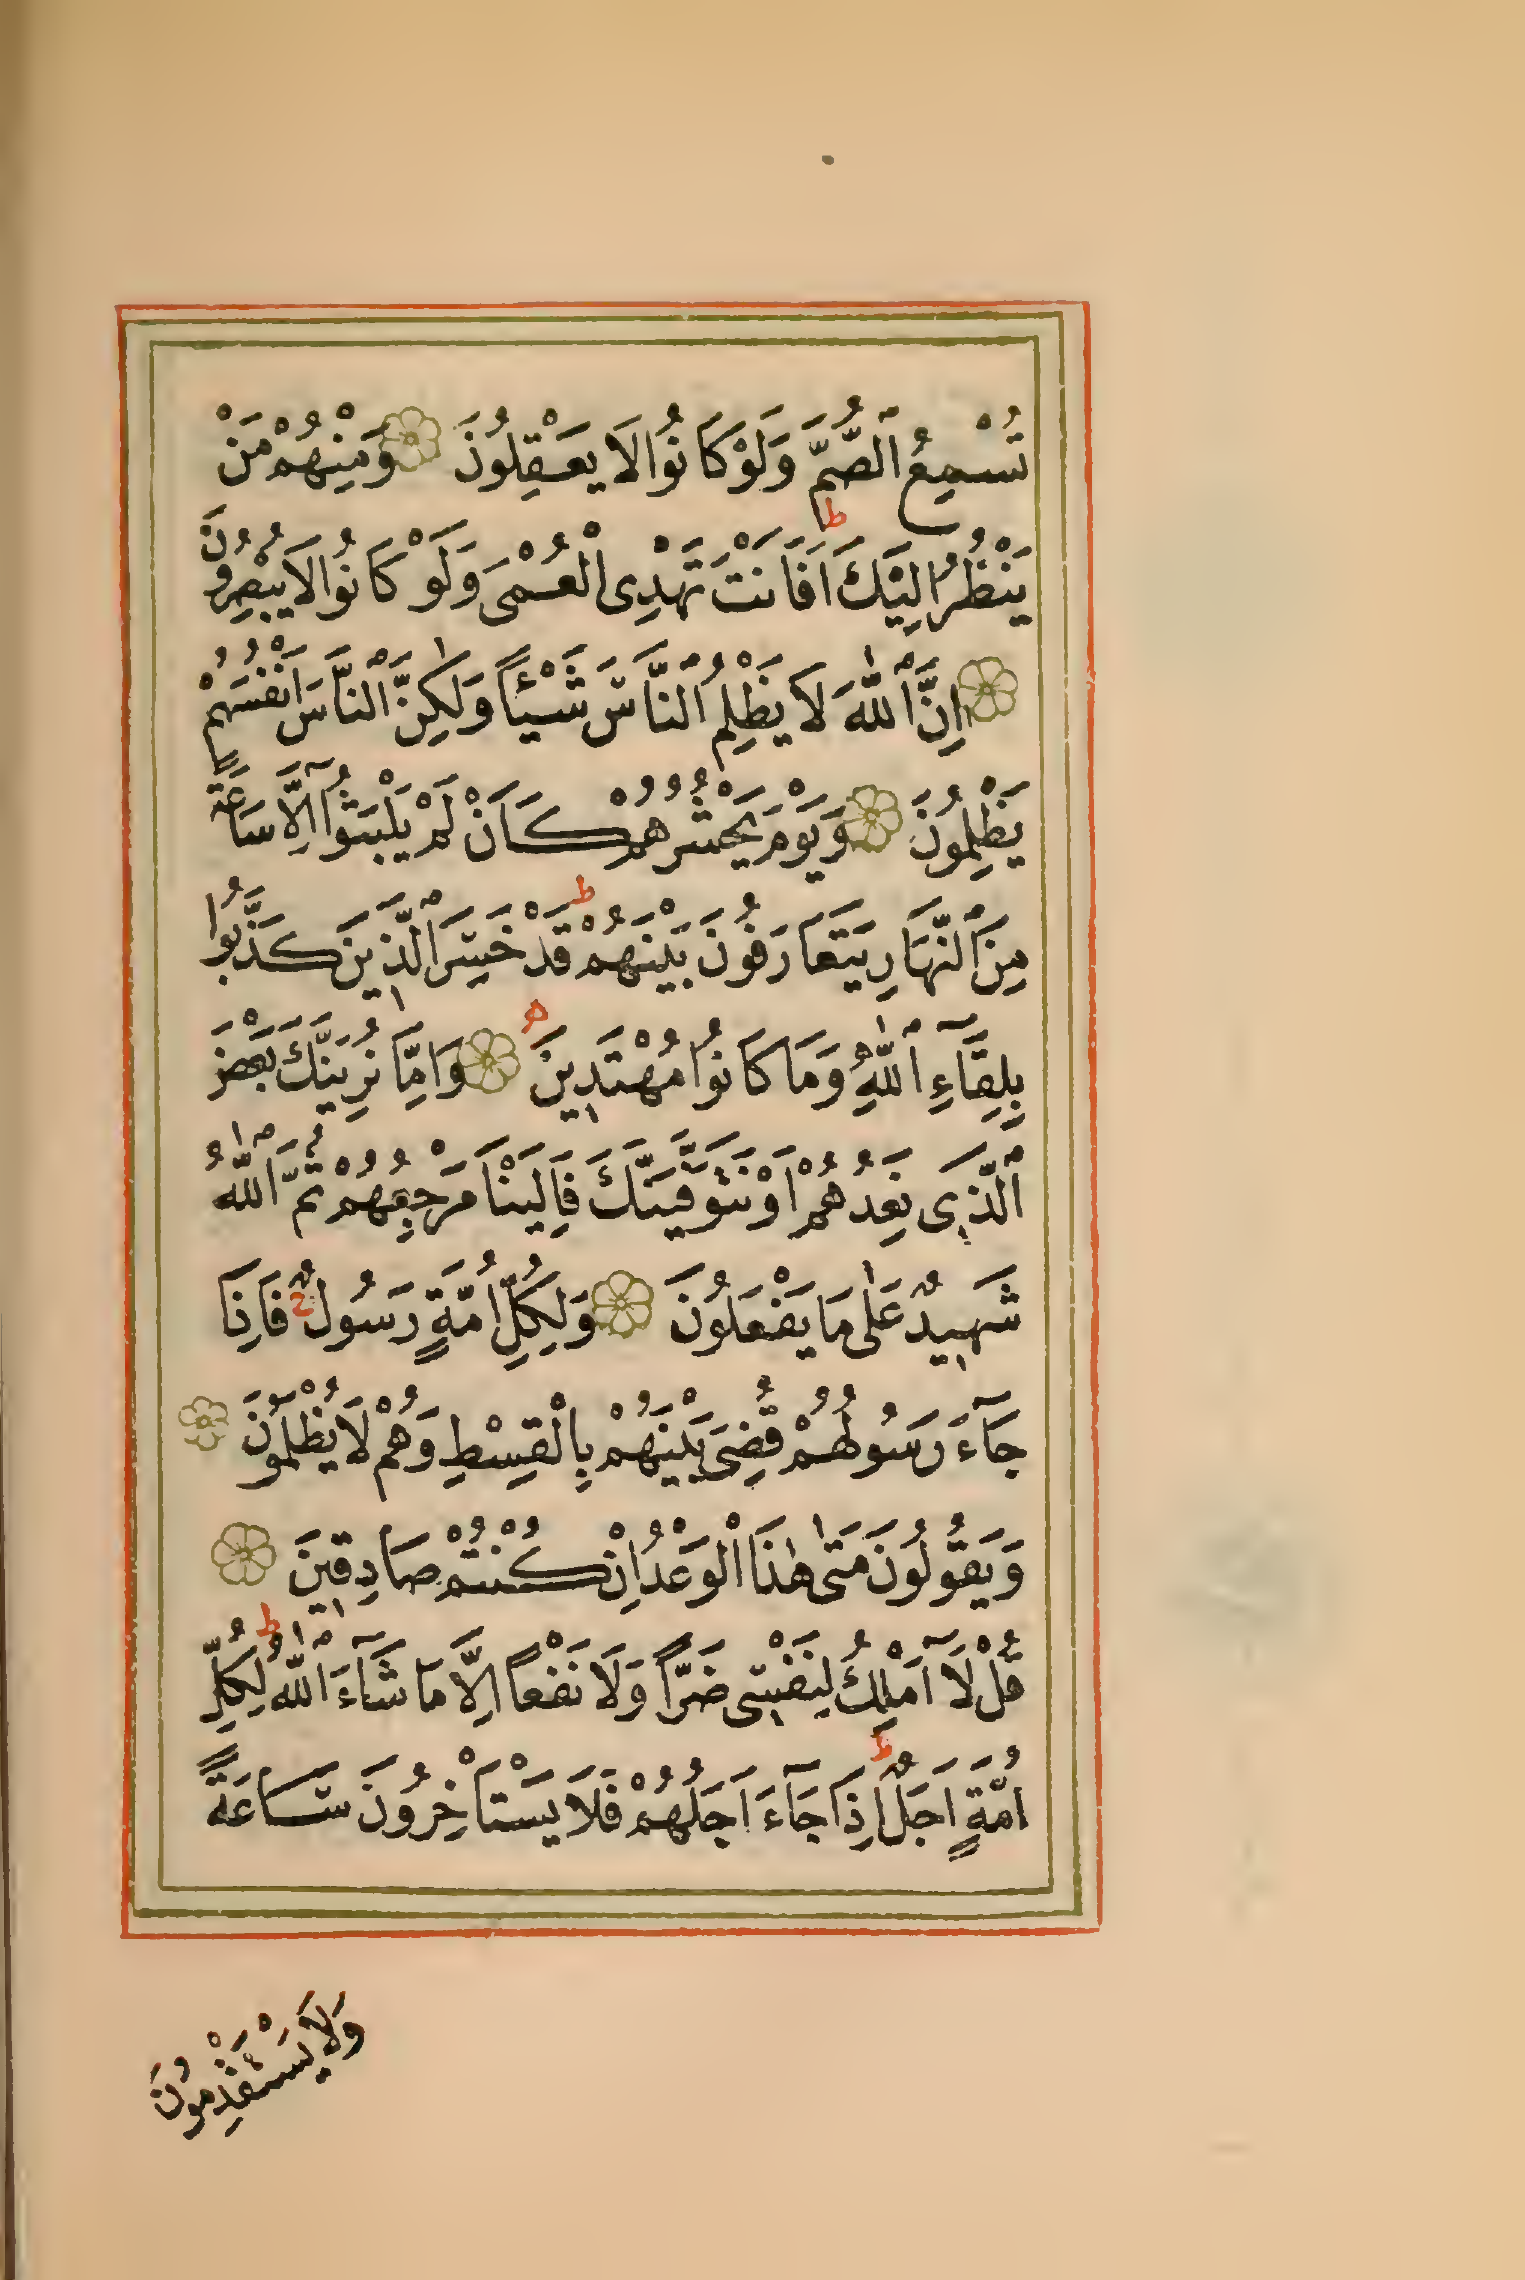 تُسْمِعُ الصُّمَّ وَلَوْ كَانُوا لَا يَعْقِلُونَ وَمِنْهُمْ مَنْ
يَنْظُرُ اِلَيْكَ ط اَفَاَنْتَ تَهْدِى الْعُمْىَ وَلَوْ كَانُوا لَا يُبْصِرُونَ
اِنَّ اللّٰهَ لَا يَظْلِمُ النَّاسَ شَيْئًا وَلٰكِنَّ النَّاسَ اَنْفُسَهُمْ
يَظْلِمُونَ وَيَوْمَ يَحْشُرُهُمْ كَاَنْ لَمْ يَلْبَثُوٓا اِلَّا سَاعَةً
مِنَ النَّهَارِ يَتَعَارَفُونَ بَيْنَهُمْ ط قَدْ خَسِرَ الَّذِينَ كَذَّبُوا
بِلِقَآءِ اللّٰهِ وَمَا كَانُوا مُهْتَدِينَ وَاِمَّا نُرِيَنَّكَ بَعْضَ
الَّذِى نَعِدُهُمْ اَوْ نَتَوَفَّيَنَّكَ فَاِلَيْنَا مَرْجِعُهُمْ ثُمَّ اللّٰهُ
شَهِيدٌ عَلٰى مَا يَفْعَلُونَ وَلِكُلِّ اُمَّةٍ رَسُولٌ ج فَاِذَا
جَآءَ رَسُولُهُمْ قُضِىَ بَيْنَهُمْ بِالْقِسْطِ وَهُمْ لَا يُظْلَمُونَ
وَيَقُولُونَ مَتٰى هٰذَا الْوَعْدُ اِنْ كُنْتُمْ صَادِقِينَ
قُلْ لَآ اَمْلِكُ لِنَفْسِى ضَرًّا وَلَا نَفْعًا اِلَّا مَا شَآءَ اللّٰهُ ط لِكُلِّ
اُمَّةٍ اَجَلٌ ط اِذَا جَآءَ اَجَلُهُمْ فَلَا يَسْتَاْخِرُونَ سَاعَةً
وَلَا يَسْتَقْدِمُونَ